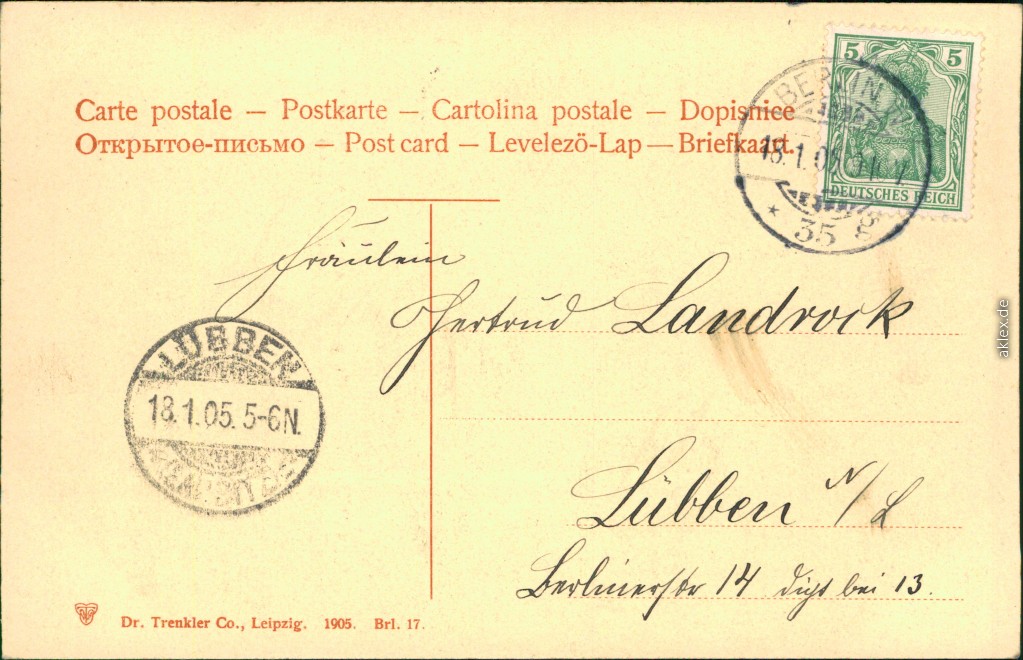 Carte postale – Postkarte – Cartolina postale – Dopisnice
Открытое-письмо – Post card – Levelezö-Lap – Briefkaart.
5 5
DEUTSCHES REICH
BERLIN
18.1.05
35 g
Fräulein
Gertrud Landrock
LÜBBEN
18.1.05. 5-6N.
Lübben N/L
Berlinerstr 14 bei 13.
Dr. Trenkler Co., Leipzig. 1905. Brl. 17.
aklex.de